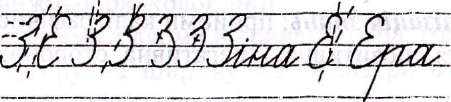 З Є З З З З Зіна Є Ера